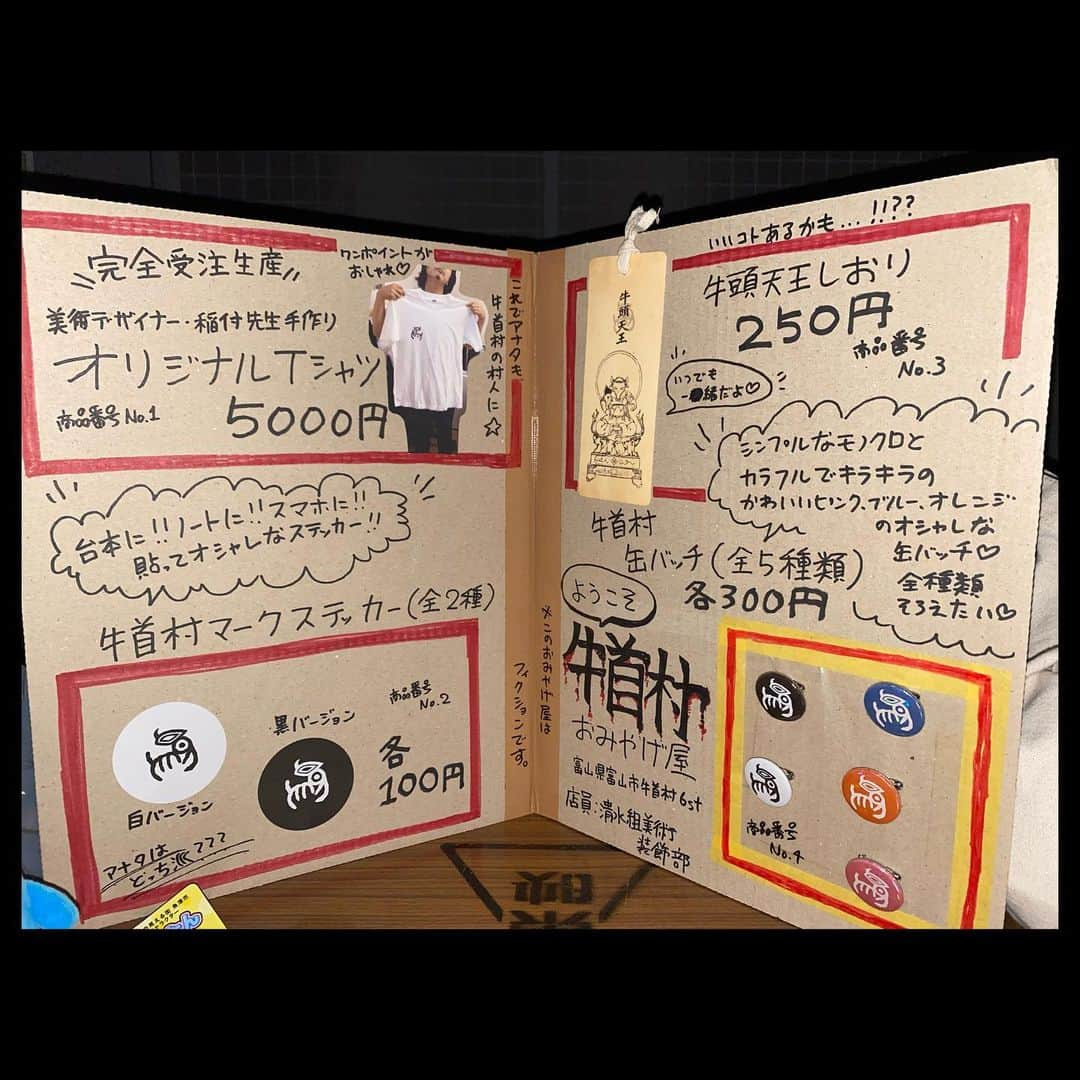 完全受注生産
ワンポイントが
おしゃれ♡
美術デザイナー・稲付先生手作り
オリジナルTシャツ
商品番号 No.1
5000円
これでアナタも、
牛首村の村人に☆
台本に!!ノートに!!スマホに!!
貼ってオシャレなステッカー!!
牛首村マークステッカー(全2種)
商品番号
No.2
黒バージョン
各
100円
白バージョン
アナタは
どっち派???
※このおみやげ屋は
フィクションです。
いいコトあるかも...!!??
牛頭天王しおり
250円
商品番号
No.3
牛頭天王
いつでも
一緒だよ♡
シンプルなモノクロと
カラフルでキラキラの
かわいいピンク、ブルー、オレンジ
のオシャレな
缶バッチ♡
全種類
そろえたい♡
牛首村
缶バッチ(全5種類)
各300円
ようこそ
牛首村
おみやげ屋
富山県富山市牛首村6st
店員:清水組美術
装飾部
商品番号
No.4